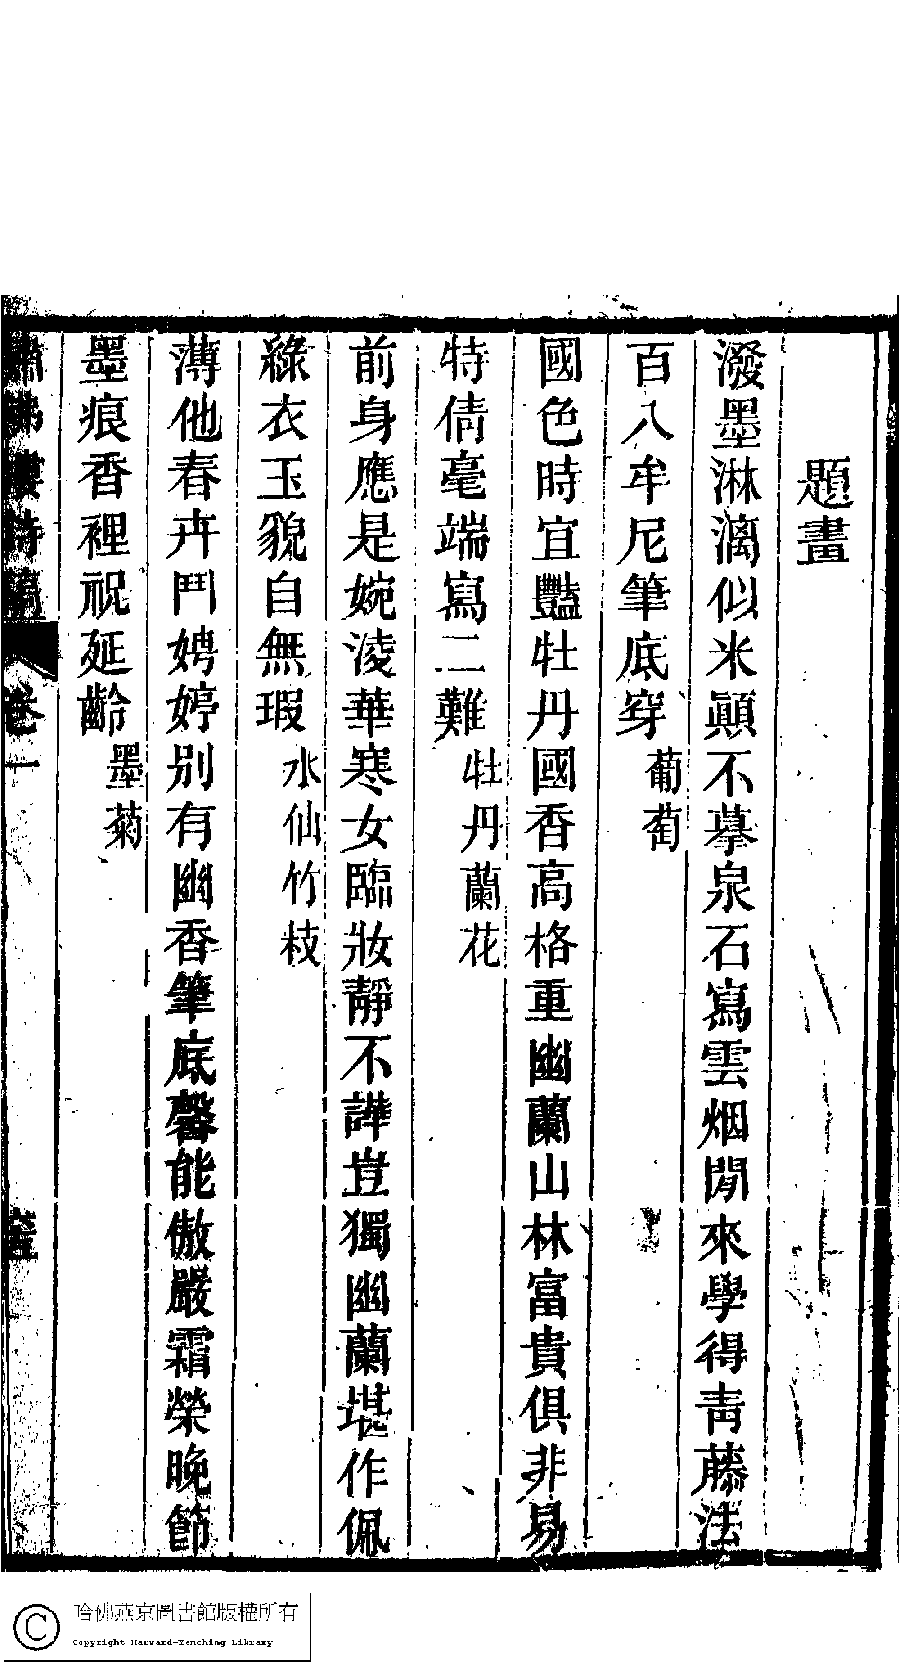 題畫
潑墨淋漓似米顛不摹泉石寫雲烟閒來學得青藤法
百八牟尼筆底穿葡萄
國色時宜豔牡丹國香高格重幽蘭山林富貴俱非易
特倩毫端寫二難牡丹蘭花
前身應是婉淩華寒女臨妝靜不譁豈獨幽蘭堪作佩
綠衣玉貌自無瑕水仙竹枝
薄他春卉鬥娉婷別有幽香筆底馨能傲嚴霜榮晚節
墨痕香裡祝延齡墨菊
繡佛樓詩稿 卷一
哈佛燕京圖書館版權所有
Copyright Harvard-Yenching Library